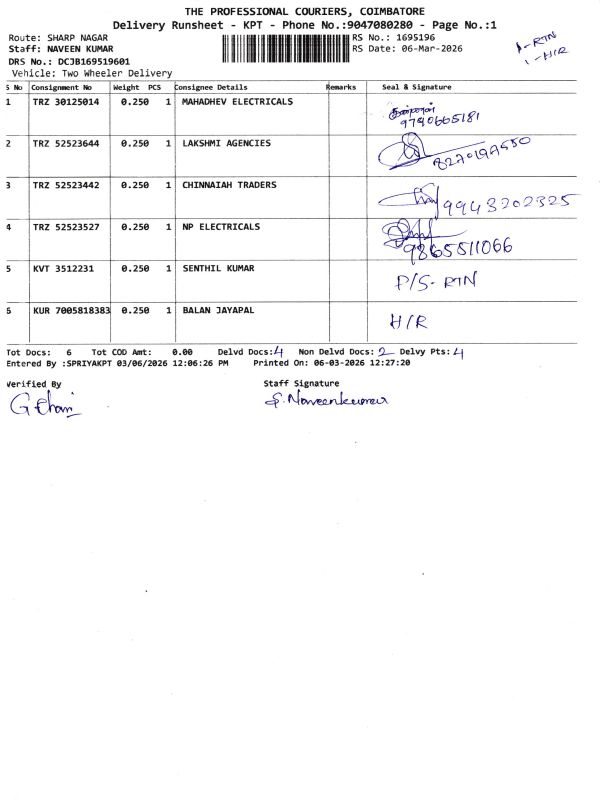 THE PROFESSIONAL COURIERS, COIMBATORE
Delivery Runsheet - KPT - Phone No.:9047080280 - Page No.:1
Route: SHARP NAGAR RS No.: 1695196
Staff: NAVEEN KUMAR RS Date: 06-Mar-2026
1-RTN
1-H/R
DRS No.: DCJB169519601
Vehicle: Two Wheeler Delivery
S No Consignment No Weight PCS Consignee Details Remarks Seal & Signature
1 TRZ 30125014 0.250 1 MAHADHEV ELECTRICALS
9790665181
2 TRZ 52523644 0.250 1 LAKSHMI AGENCIES
3 TRZ 52523442 0.250 1 CHINNAIAH TRADERS 9943202325
4 TRZ 52523527 0.250 1 NP ELECTRICALS
9865511066
5 KVT 3512231 0.250 1 SENTHIL KUMAR P/S- RTN
6 KUR 7005818383 0.250 1 BALAN JAYAPAL H/R
Tot Docs: 6 Tot COD Amt: 0.00 Delvd Docs:4 Non Delvd Docs:2 Delvy Pts:4
Entered By :SPRIYAKPT 03/06/2026 12:06:26 PM Printed On: 06-03-2026 12:27:20
Verified By Staff Signature
S.Naveenkumar